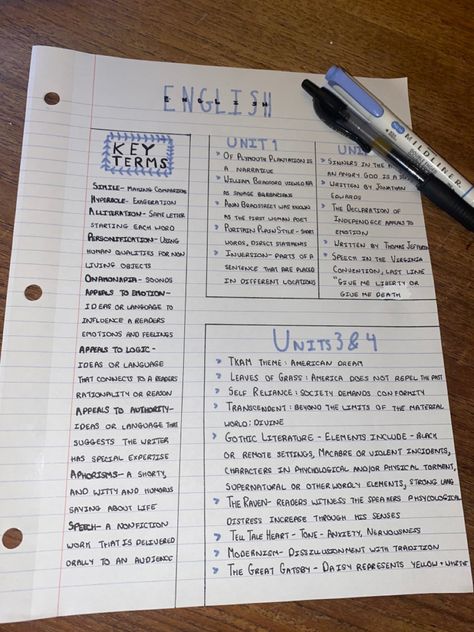 ENGLISH
ENGLISH
KEY
TERMS
SIMILE- MAKING COMPARISON
HYPERBOLE- EXAGERATION
ALLITERATION- SAME LETTER
STARTING EACH WORD
PERSONIFICATION- USING
HUMAN QUALITIES FOR NON
LIVING OBJECTS
ONAMONAPIA- SOUNDS
APPEALS TO EMOTION-
IDEAS OR LANGUAGE TO
INFLUENCE A READERS
EMOTIONS AND FEELINGS
APPEALS TO LOGIC-
IDEAS OR LANGUAGE
THAT CONNECTS TO A READERS
RATIONALITY OR REASON
APPEALS TO AUTHORITY-
IDEAS OR LANGUAGE THAT
SUGGESTS THE WRITER
HAS SPECIAL EXPERTISE
APHORISMS- A SHORTY,
AND WITTY AND HUMORUS
SAYING ABOUT LIFE
SPEECH- A NONFICTION
WORK THAT IS DELIVERED
ORALLY TO AN AUDIENCE
UNIT 1
OF PLYMOUTH PLANTATION IS
A NARRATIVE
WILLIAM BRADFORD VIEWED NA
AS SAVAGE BARBARIANS
ANN BRADSTREET WAS KNOWN
AS THE FIRST WOMAN POET
PLAIN STYLE- SHORT
WORDS, DIRECT STATEMENTS
INVERSION- PARTS OF A
SENTENCE THAT ARE PLACED
IN DIFFERENT LOCATIONS
UNI
SINNERS IN THE
AN ANGRY GOD IS A
WRITTEN BY JONATHAN
EDWARDS
THE DECLARATION OF
INDEPENDECE APPEALS TO
EMOTION
WRITTEN BY THOMAS JEFFERS
SPEECH IN THE VIRGINIA
CONVENTION, LAST LINE
"GIVE ME LIBERTY OR
GIVE ME DEATH
UNITS 3 & 4
TKAM THEME: AMERICAN DREAM
LEAVES OF GRASS: AMERICA DOES NOT REPEL THE PAST
SELF RELIANCE: SOCIETY DEMANDS CONFORMITY
TRANSCENDENT: BEYOND THE LIMITS OF THE MATERIAL
WORLD: DIVINE
GOTHIC LITERATURE - ELEMENTS INCLUDE - BLACK
OR REMOTE SETTINGS, MACABRE OR VIOLENT INCIDENTS,
CHARACTERS IN PHYCHOLOGICAL AND/OR PHYSICAL TORMENT,
SUPERNATURAL OR OTHERWORDLY ELEMENTS, STRONG LANG
THE RAVEN- READERS WITNESS THE SPEAKERS PHYSCOLOGICAL
DISTRESS INCREASE THROUGH HIS SENSES
TELL TALE HEART - TONE - ANXIETY, NERVOUSNESS
MODERNISM- DISSILLUSIONMENT WITH TRADITION
THE GREAT GATSBY - DAISY REPRESENTS YELLOW + WHITE
MILDLINER